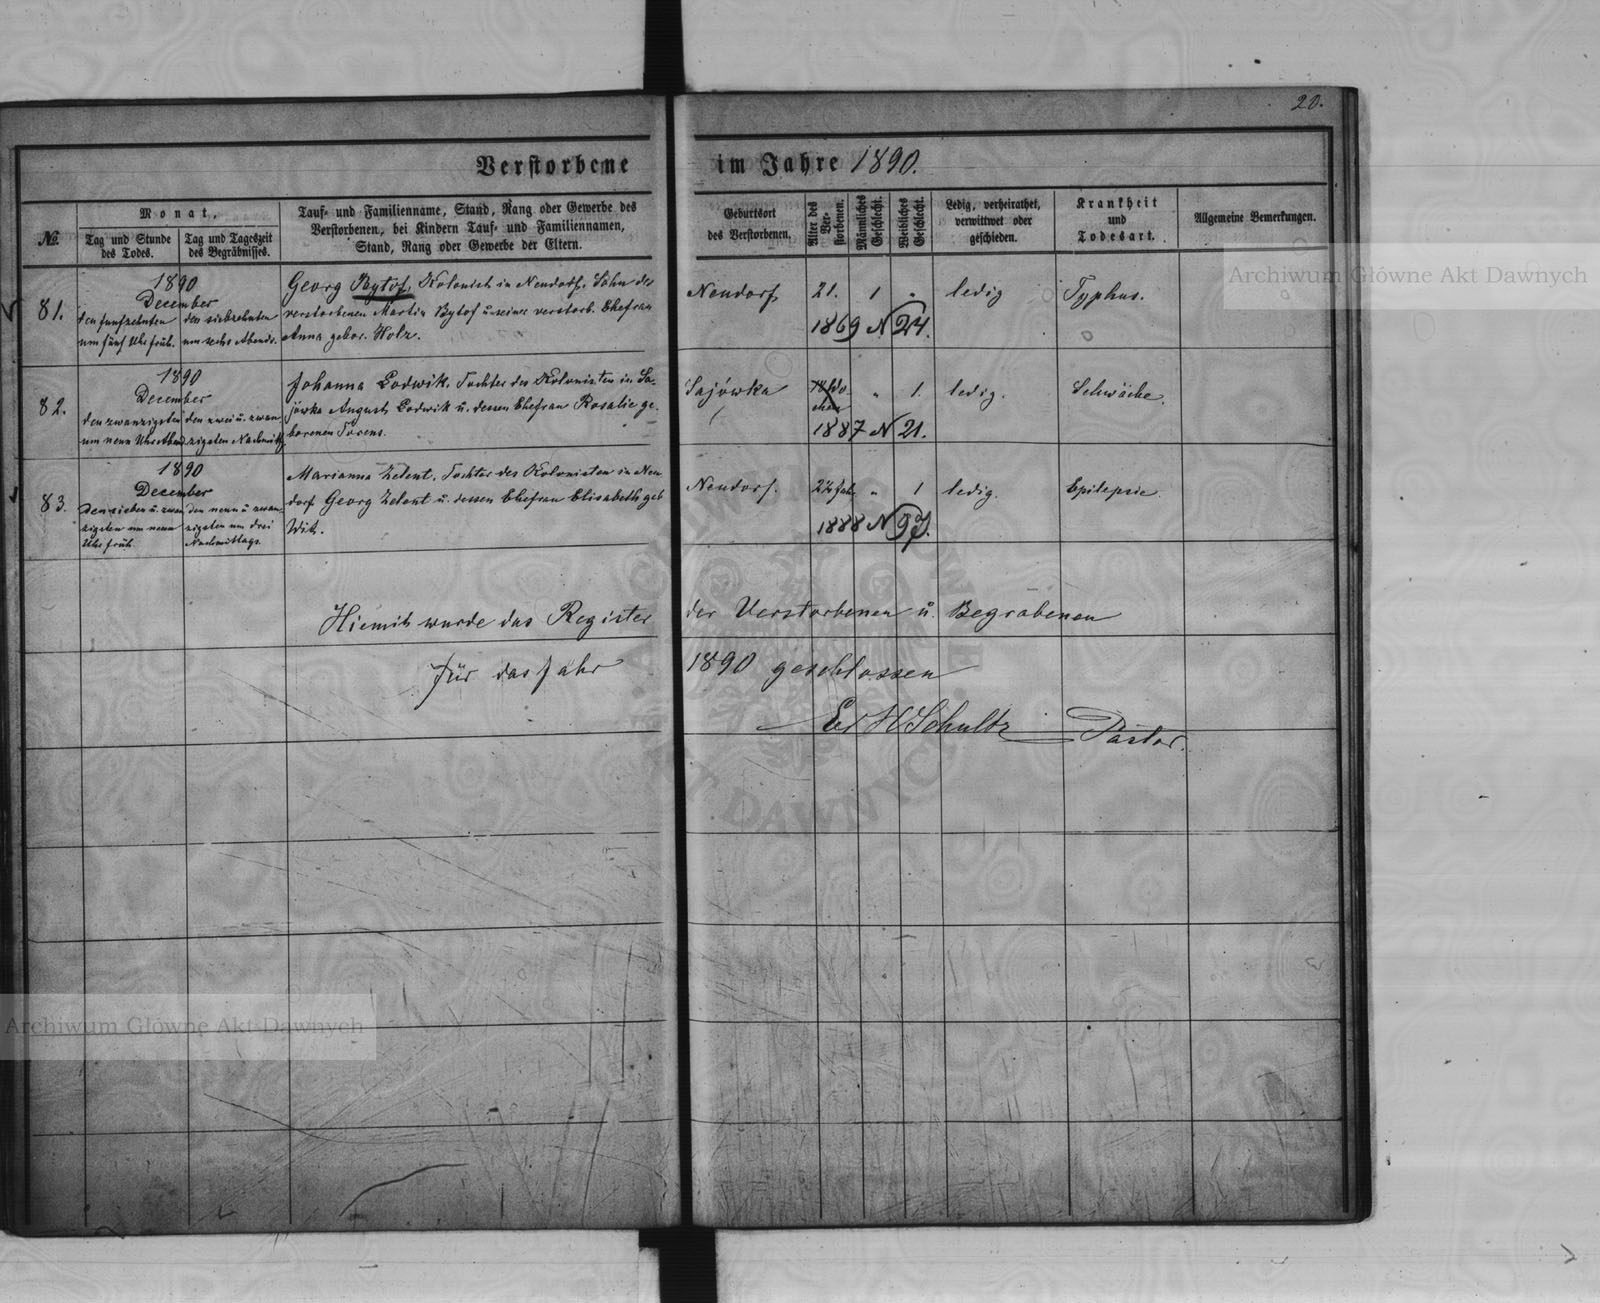 20.
Verstorbene im Jahre 1890.
№
Monat,
Tag und Stunde des Todes.
Tag und Tageszeit des Begräbnisses.
Tauf- und Familienname, Stand, Rang oder Gewerbe des
Verstorbenen, bei Kindern Tauf- und Familiennamen,
Stand, Rang oder Gewerbe der Eltern.
Geburtsort
des Verstorbenen.
Alter des Verstorbenen.
Männliches Geschlecht.
Weibliches Geschlecht.
Ledig, verheirathet,
verwittwet oder
geschieden.
Krankheit
und
Todesart.
Allgemeine Bemerkungen.
81.
1890
December
den fünfzehnten
um fünf Uhr früh.
den siebzehnten
um sechs Abends.
Georg Bytof, Kolonist in Neudorf, Sohn des
verstorbenen Martin Bytof u. seiner verstorb. Ehefrau
Anna gebor. Holz.
Neudorf
21.
1
"
ledig
Typhus.
1869 N 24.
82.
1890
December
den zwanzigsten
um neun Uhr Abend
den zwei u. zwan
zigsten Nachmitt.
Johanna Lodwik, Tochter des Kolonisten in Sa-
jówka August Lodwik u. dessen Ehefrau Rosalie ge-
borenen Torens.
Sajówka
"
1.
ledig.
Schwäche.
1887 N 21.
83.
1890
December
den sieben u. zwan
zigsten um neun
Uhr früh.
den neun u. zwan
zigsten um drei
Nachmittags.
Marianna Zelent, Tochter des Kolonisten in Neu
dorf Georg Zelent u. dessen Ehefrau Elisabeth geb
Wit.
Neudorf.
"
1
ledig.
Epilepsie.
1888 N 97.
Hiemit wurde das Register der Verstorbenen u. Begrabenen
für das Jahr 1890 geschlossen
Schultz Pastor.
Archiwum Główne Akt Dawnych
Archiwum Główne Akt Dawnych
AKT DAWNYCH